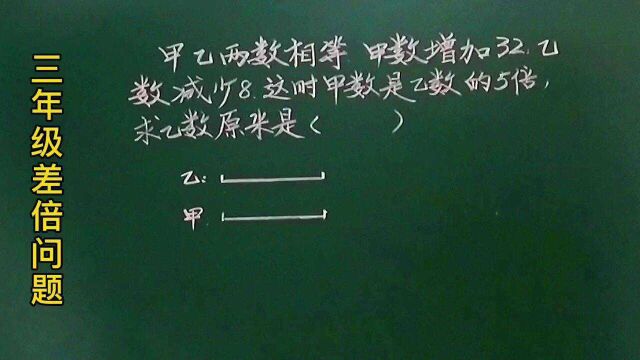 三年级差倍问题
甲乙两数相等 甲数增加32.乙
数减少8.这时甲数是乙数的5倍,
求乙数原来是( )
乙:
甲